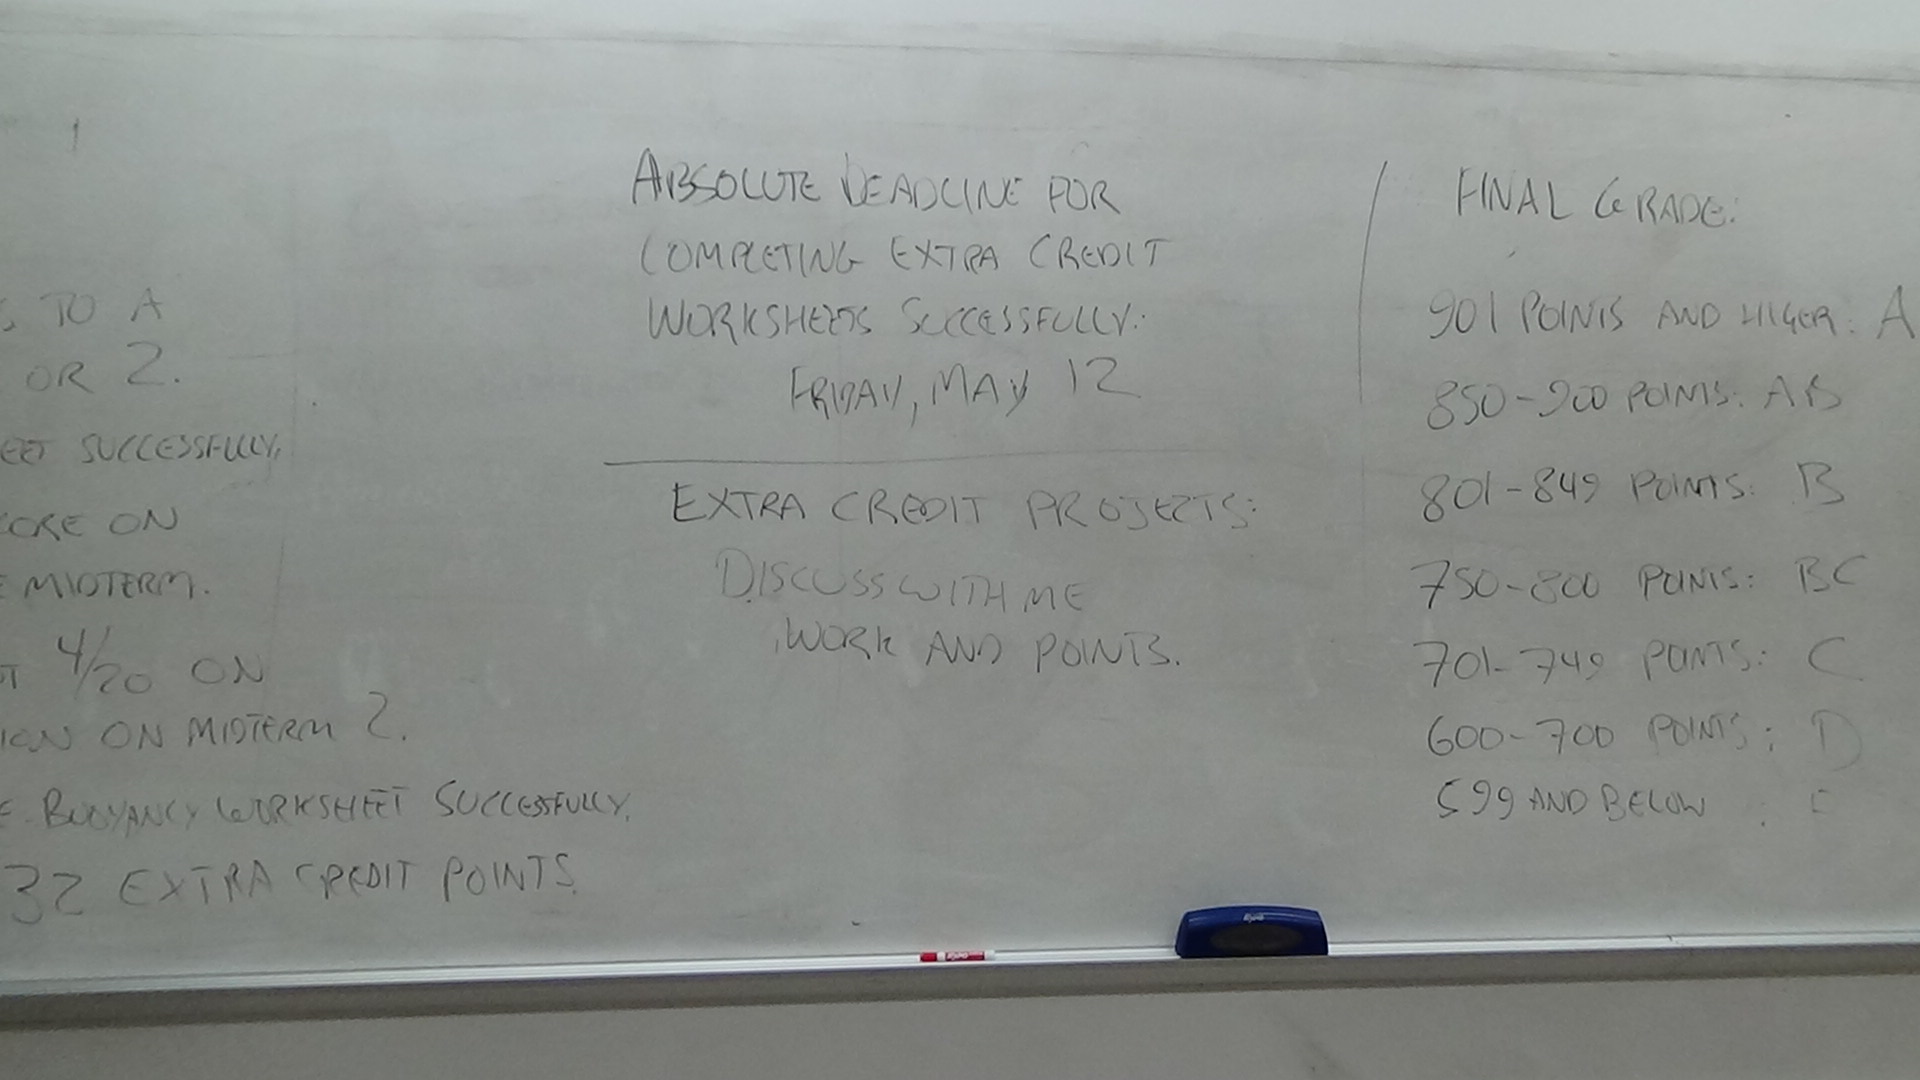 TO A
OR 2.
SUCCESSFULLY,
ON
MIDTERM.
4/20 ON
ON MIDTERM 2.
BUOYANCY WORKSHEET SUCCESSFULLY.
32 EXTRA CREDIT POINTS.
ABSOLUTE DEADLINE FOR
COMPLETING EXTRA CREDIT
WORKSHEETS SUCCESSFULLY:
FRIDAY, MAY 12
EXTRA CREDIT PROJECTS:
DISCUSS WITH ME
WORK AND POINTS.
FINAL GRADE:
901 POINTS AND HIGER: A
850-900 POINTS: AB
801-849 POINTS: B
750-800 POINTS: BC
701-749 POINTS: C
600-700 POINTS: D
599 AND BELOW :